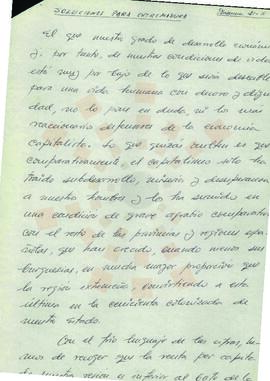 SOLUCIONES PARA EXTREMADURA
El que nuestro grado de desarrollo económico
y, por tanto, de nuestras condiciones de vida
está muy por bajo de lo que sería deseable
para una vida humana con decoro y digni-
dad, no lo pone en duda, ni los más
reaccionarios defensores de la economía
capitalista. Lo que quizás oculten es que
comparativamente, el capitalismo sólo ha
traído subdesarrollo, miseria y desesperación
a nuestros hombres y los ha sumido en
una condición de grave agravio comparativo
con el resto de las provincias y regiones espa-
ñolas, que han crecido, cuando menos sus
burguesías, en mucha mayor proporción que
la región extremeña, convirtiendo a esta
última en la conciencia colonizadora de
nuestro estado.
Con el frío lenguaje de las cifras, he-
mos de recoger que la renta per capita
de nuestra región es inferior al 60% de la